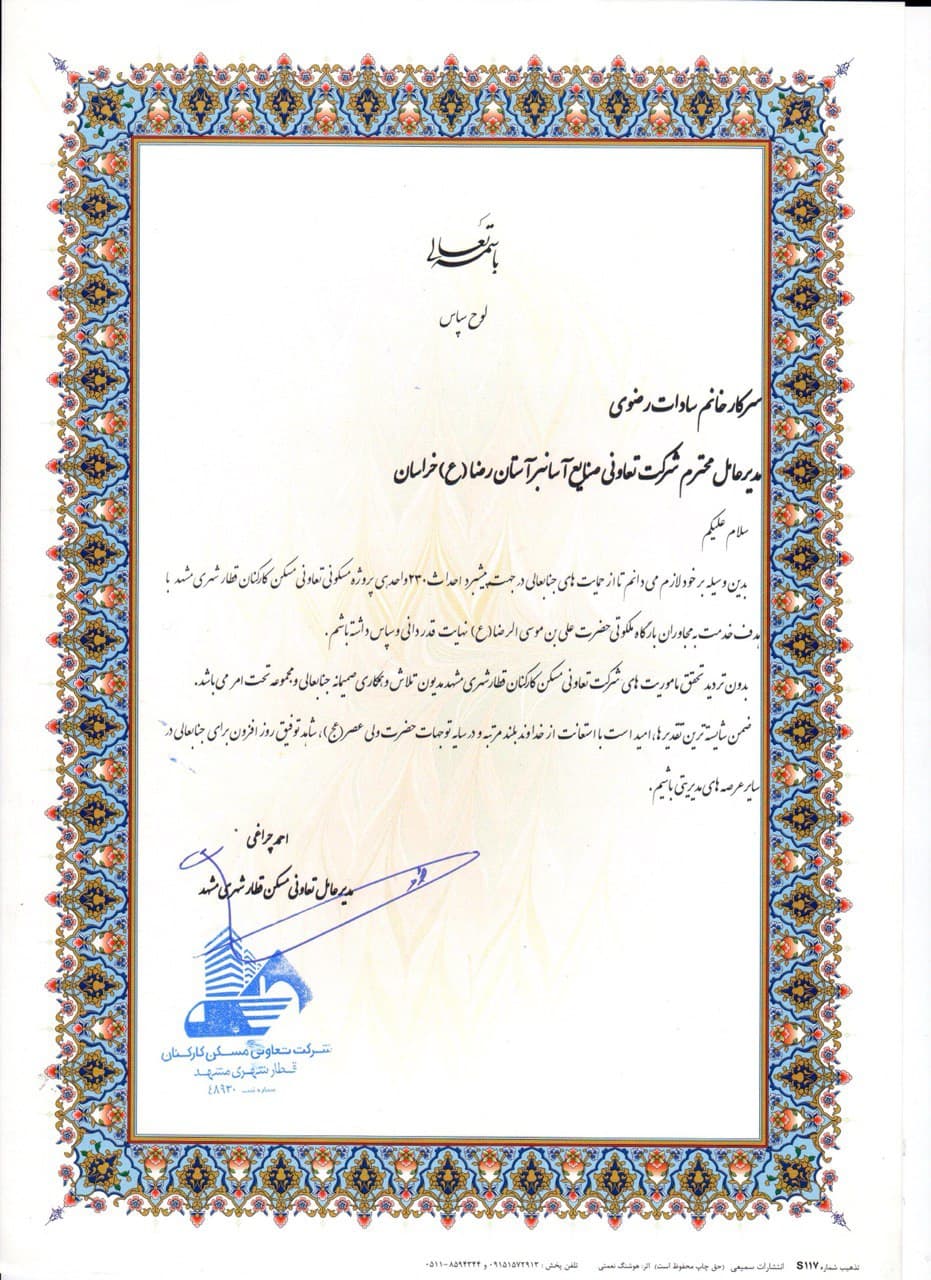 باسمه تعالی
لوح سپاس
سرکار خانم سادات رضوی
مدیرعامل محترم شرکت تعاونی صنایع آسانبر آستان رضا (ع) خراسان
سلام علیکم
بدین وسیله بر خود لازم می دانم تا از حمایت های جنابعالی در جهت پیشبرد احداث ۲۳۰ واحدهی پروژه مسکونی تعاونی مسکن کارکنان قطار شهری مشهد با
هدف خدمت به مجاوران بارگاه ملکوتی حضرت علی بن موسی الرضا (ع) نهایت قدردانی و سپاس داشته باشم.
بدون تردید تحقق ماموریت های شرکت تعاونی مسکن کارکنان قطار شهری مشهد مدیون تلاش و همکاری صمیمانه جنابعالی و مجموعه تحت امر می باشد.
ضمن شایسته ترین تقدیرها، امید است با استعانت از خداوند بلند مرتبه و در سایه توجهات حضرت ولی عصر (عج)، شاهد توفیق روز افزون برای جنابعالی در
سایر عرصه های مدیریتی باشیم.
احمد چراغی
مدیرعامل تعاونی مسکن قطار شهری مشهد
شرکت تعاونی مسکن کارکنان
قطار شهری مشهد
شماره ثبت ۴۸۹۳۰
تذهیب شماره S۱۱۷ انتشارات سمیعی (حق چاپ محفوظ است) اثر: هوشنگ نعمتی تلفن پخش: ۰۹۱۵۱۵۷۲۹۱۳ و ۸۵۹۴۳۴۴-۰۵۱۱